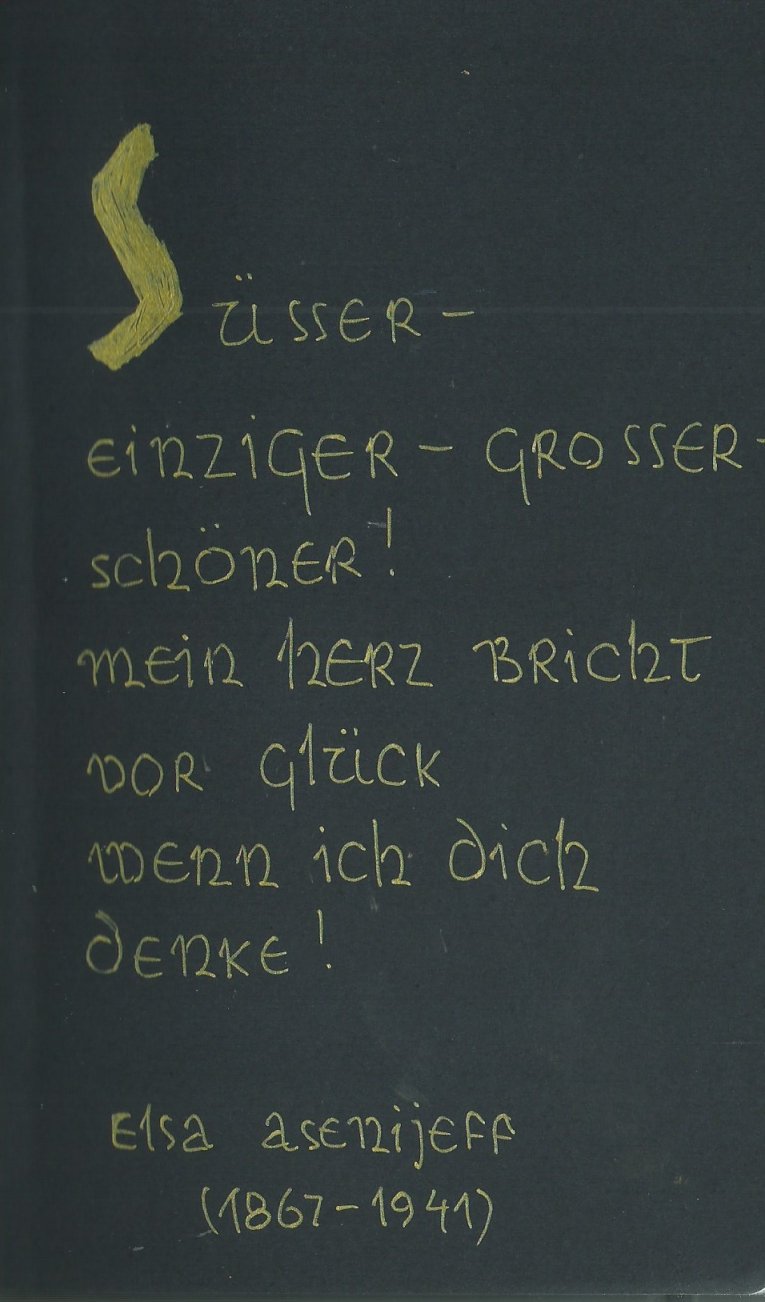 Süsser –
einziger – grosser –
schöner!
mein herz bricht
vor glück
wenn ich dich
denke!
Elsa asenijeff
(1867–1941)